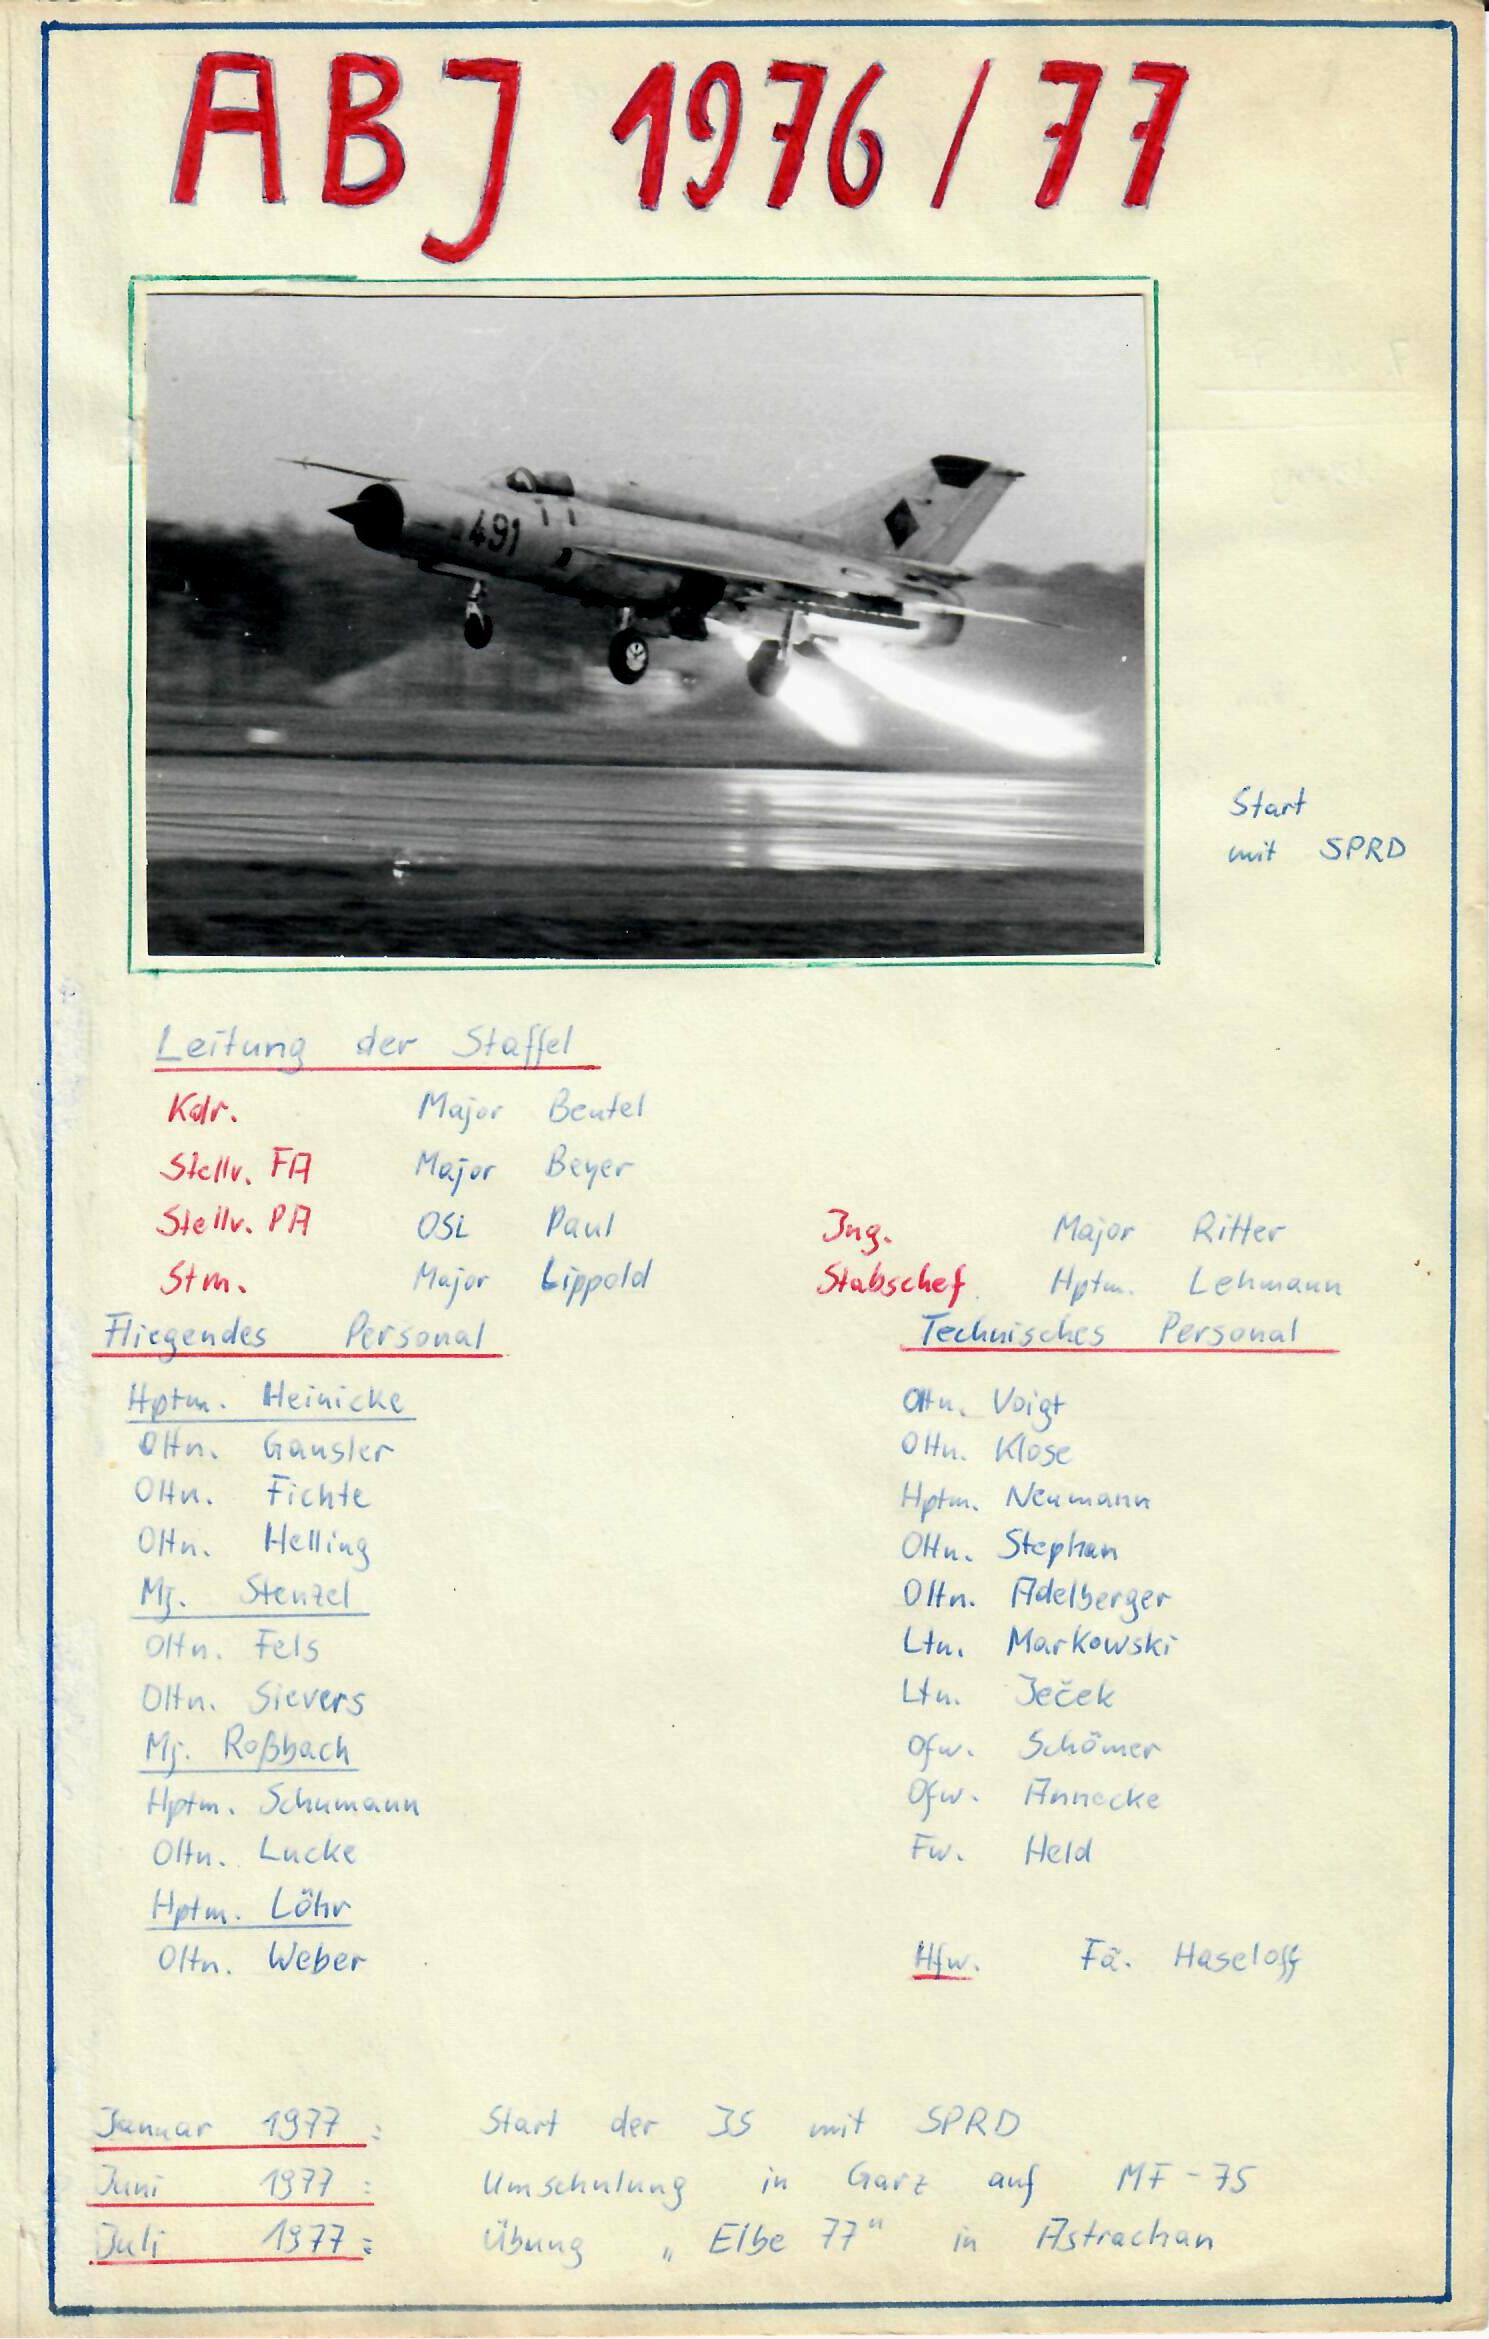 ABJ 1976/77
491
Start
mit SPRD
Leitung der Staffel
Kdr. Major Beutel
Stellv. FA Major Beyer
Stellv. PA OSL Paul
Ing. Major Ritter
Stm. Major Lippold
Stabschef Hptm. Lehmann
Fliegendes Personal
Hptm. Heinicke
Oltn. Gausler
Oltn. Fichte
Oltn. Helling
Mj. Stenzel
Oltn. Fels
Oltn. Sievers
Mj. Roßbach
Hptm. Schumann
Oltn. Lucke
Hptm. Löhr
Oltn. Weber
Technisches Personal
Oltn. Voigt
Oltn. Klose
Hptm. Neumann
Oltn. Stephan
Oltn. Adelberger
Ltn. Markowski
Ltn. Ječek
Ofw. Schömer
Ofw. Annecke
Fw. Held
Hfw. Fä. Haseloff
Januar 1977: Start der JS mit SPRD
Juni 1977: Umschulung in Garz auf MF-75
Juli 1977: Übung „Elbe 77" in Astrachan